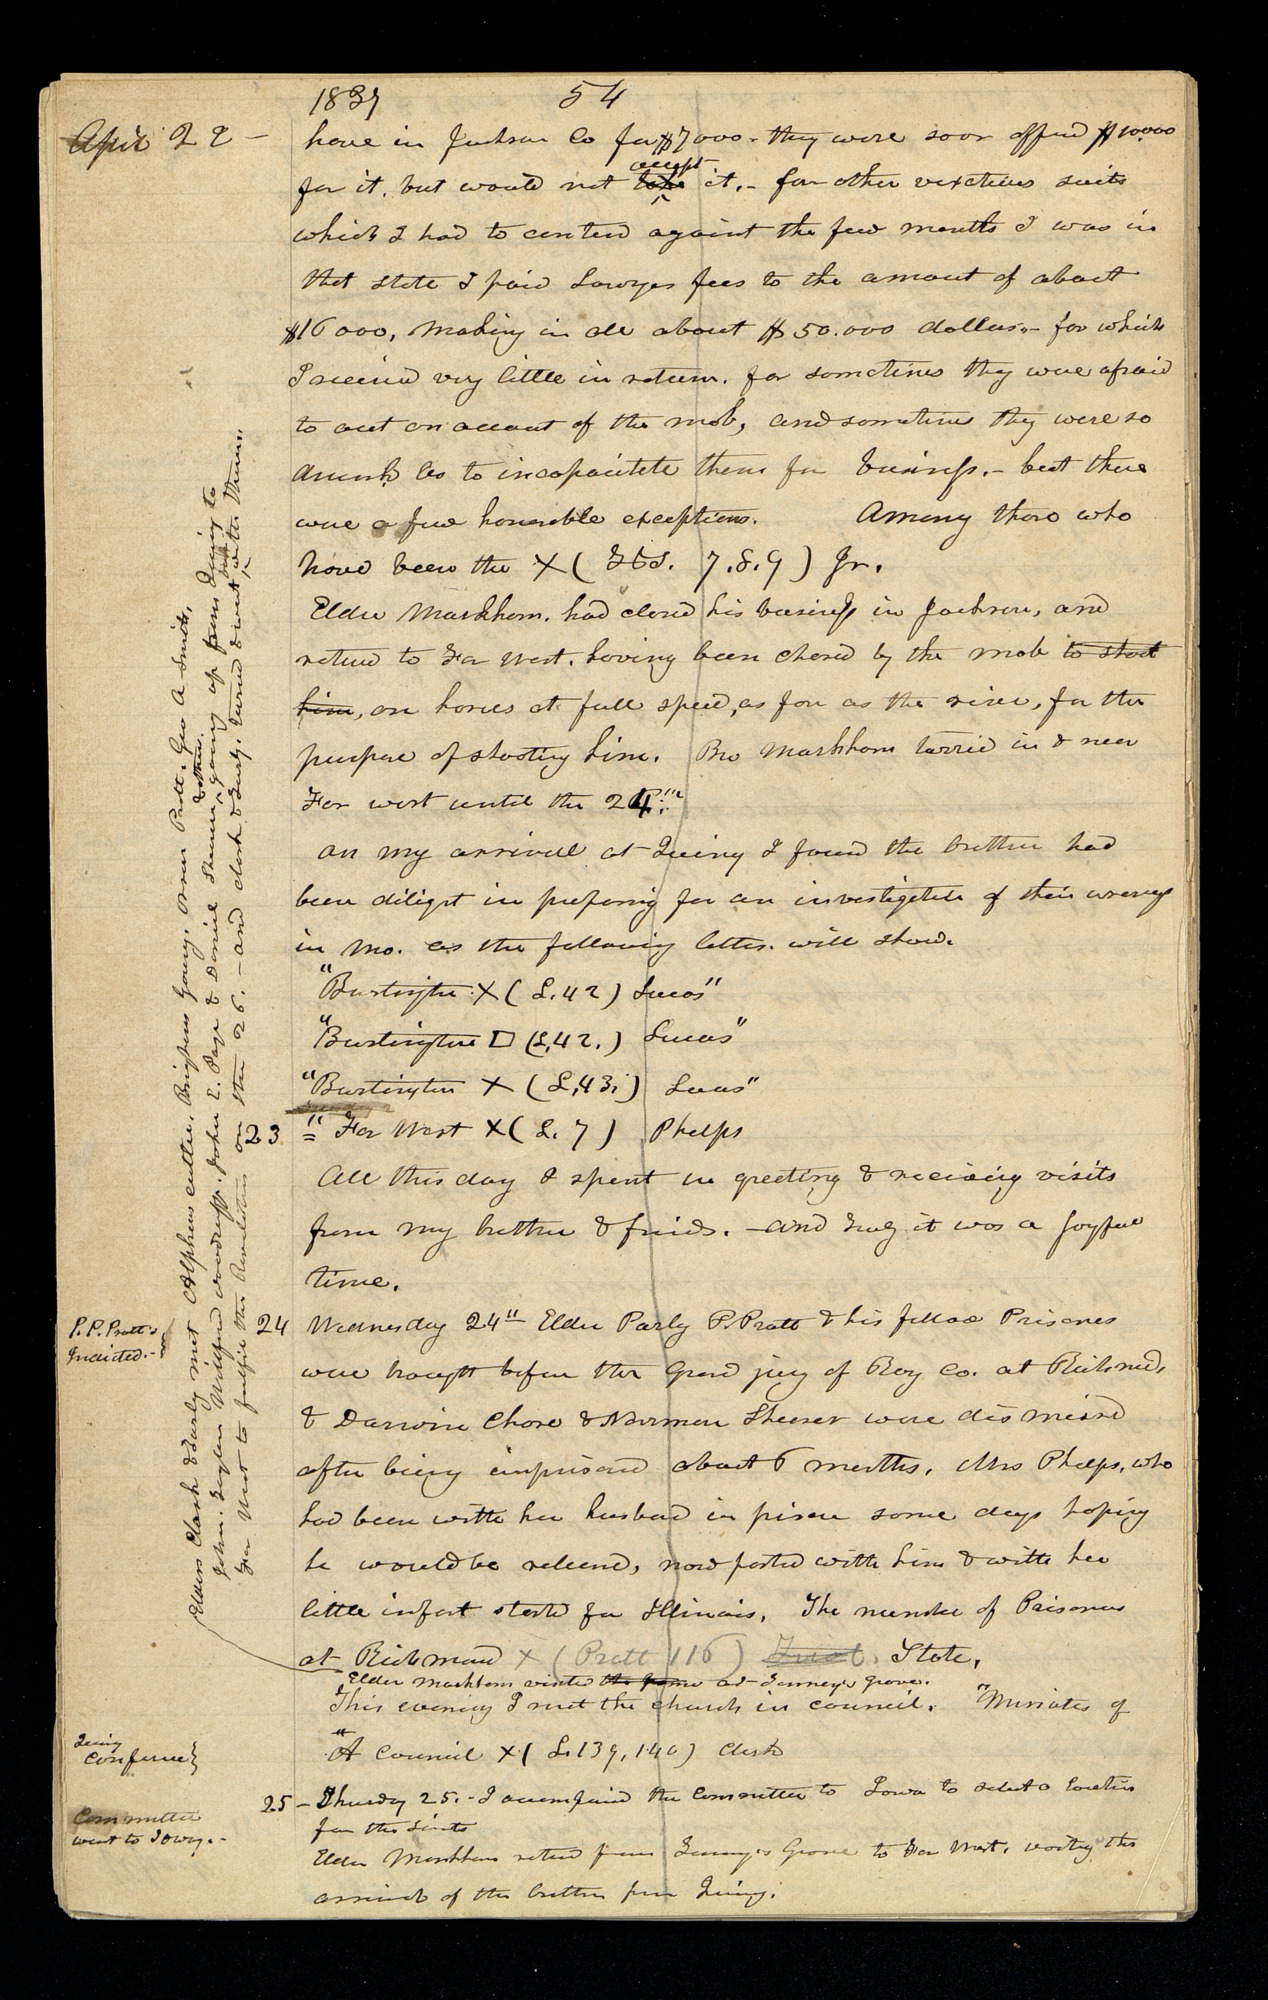 1839 54
April 22 –
have in Jackson Co for $7000. they were soon offered $10.000
for it. but would not take accept it. – for other vexatious suits
which I had to contend against the few months I was in
that state I paid Lawyers fees to the amount of about
$16000, making in all about $50.000 dollars. – for which
I receivd very little in return. for sometimes they were afraid
to act on account of the mob, and sometimes they were so
drunk as to incapacitate them for business. – but there
were a few honorable exceptions. Among those who
have been the X ( 7.8.9 ) Jr.
Elder Markham. had closed his business in Jackson, and
returned to Far West. having been chased by the mob to shoot
him, on horses at full speed, as far as the river, for the
purpose of shooting him. Bro Markham tarried in & near
Far west until the 24th
on my arrival at Quincy I found the brethren had
been diligent in preparing for an investigation of their wrongs
in Mo. as the following letters. will show.
"Burlington X ( L. 42 ) Lucas"
"Burlington □ (L, 42. ) Lucas"
"Burlington X ( L, 43, ) Lucas"
23 " Far West X ( L. 7 ) Phelps
All this day I spent in greeting & receiving visits
from my brethren & friends. – and truly it was a joyful
time.
P. P. Pratt's
Indicted. –
24 Wednesday 24" Elder Parly P. Pratt & his fellow Prisoners
were brought before the Grand jury of Ray Co. at Richmond,
& Darwin Chase & Norman Shearer were dismissd
after being imprisoned about 6 months. Mrs Phelps, who
had been with her husband in prison some days hoping
he would be released, now parted with him & with her
little infant started for Illinois. The number of Prisoners
at Richmond X ( Pratt 116 ) Trial. State.
Elder Markham visited at Tenney's Grove.
This evening I met the church in council. "Minutes of
"A Council X ( L. 139, 140 ) clerk
Quincy
Conference}
25 – Thursday 25. – I accompanied the Committee to Iowa to select a location
for the Saints
Committee
went to Iowy. –
Elder Markham returned from Tenney's Grove to Far West, waiting the
arrival of the brethren from Quincy.
Elders Clark & Turly met Alpheus Cutler, Brigham Young, Orson Pratt, Geo A Smith,
John. Taylor Wilford Woodruff. John E. Page & Daniel Shearer & others. going up from Quincy to
Far West to fulfil the Revelation on the 26. – and clark & Turly. turned & went with them.